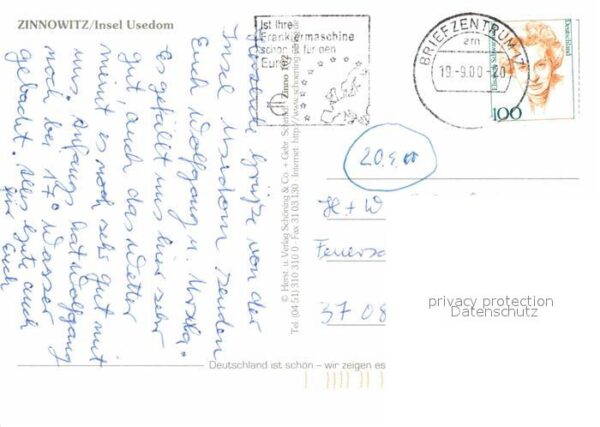 ZINNOWITZ/Insel Usedom
Herzliche Grüße von der
Insel Usedom senden
Euch Wolfgang u.
Es gefällt uns hier sehr
gut, auch das Wetter
meint es noch sehr gut mit
uns. Anfangs hat Wolfgang
noch bei 17° Wasser
gebadet. Alles Gute auch
für Euch
Zinno 102
© Herst. u. Verlag Schöning & Co. + Gebr. Schmidt
Tel. (04 51) 310 310 0 · Fax 31 03 130 · Internet http://www.schoening
Ist Ihre
Frankiermaschine
schon fit für den
Euro?
BRIEFZENTRUM 17
am
19.-9.00-20
Deutschland
100
20.9.00
H + W
37 08
privacy protection
Datenschutz
Deutschland ist schön – wir zeigen es